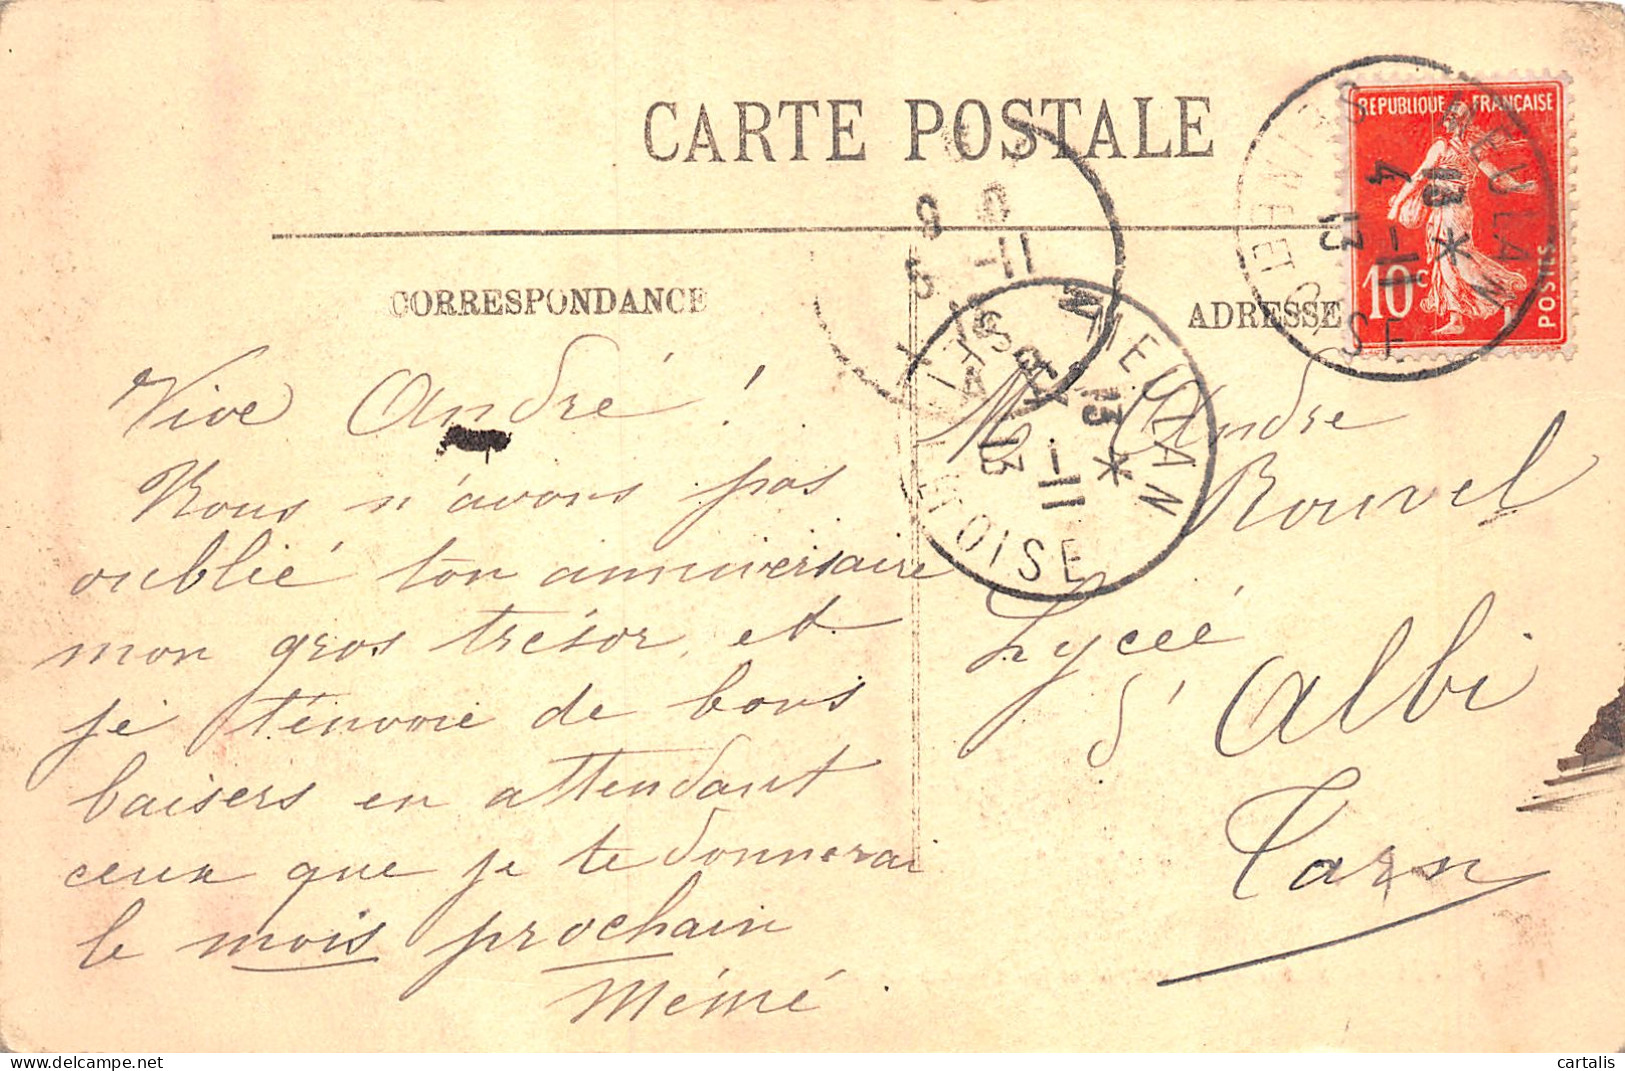 CARTE POSTALE
CORRESPONDANCE
ADRESSE
REPUBLIQUE FRANÇAISE
10c
POSTES
MEULAN
13 *
4 -11
13
SEINE ET OISE
MEULAN
13 *
4 -11
13
SEINE ET OISE
Vive André !
Nous n'avons pas
oublié ton anniversaire
mon gros trésor, et
je t'envoie de bons
baisers en attendant
ceux que je te donnerai
le mois prochain
Mémé
M. André
Rouvel
Lycée
d'Albi
Tarn
cartalis